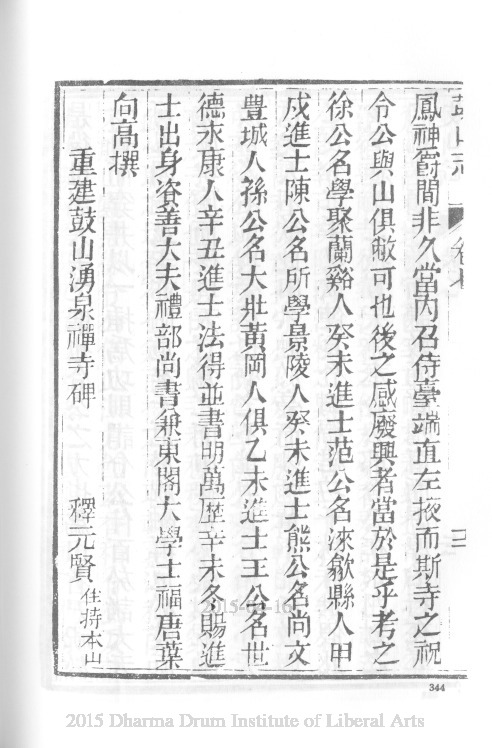 鼓山志 卷七
鳳神奝間非久當內召侍臺端直左掖而斯寺之祝
令公與山俱敝可也後之感廢興者當於是乎考之
徐公名學聚蘭谿人癸未進士范公名淶歙縣人甲
戌進士陳公名所學景陵人癸未進士熊公名尚文
豐城人孫公名大壯黃岡人俱乙未進士王公名世
德永康人辛丑進士法得並書明萬歷辛未冬賜進
士出身資善大夫禮部尚書兼東閣大學士福唐葉
向高撰
重建鼓山湧泉禪寺碑 釋元賢 住持本山
344
2015 Dharma Drum Institute of Liberal Arts